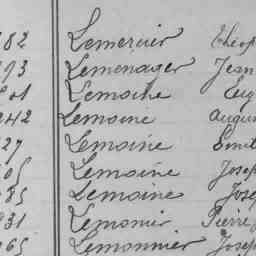 82 Lemercier Théop
Lemenager Jean
Lemoine Eug
242 Lemoine Augus
27 Lemoine Emil
Lemoine Josep
85 Lemoine José
931 Lemonier Pierre
965 Lemonnier Josep